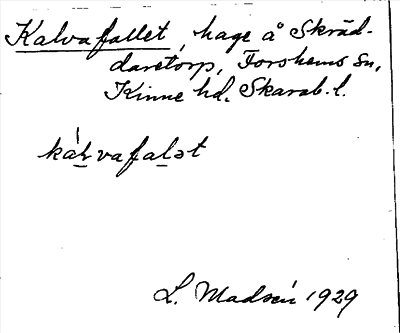 Kalvafallet, hage å Skräd-
daretorp, Forshems sn,
Kinne hd. Skarab. l.
kálvafalət
L. Madsén 1929